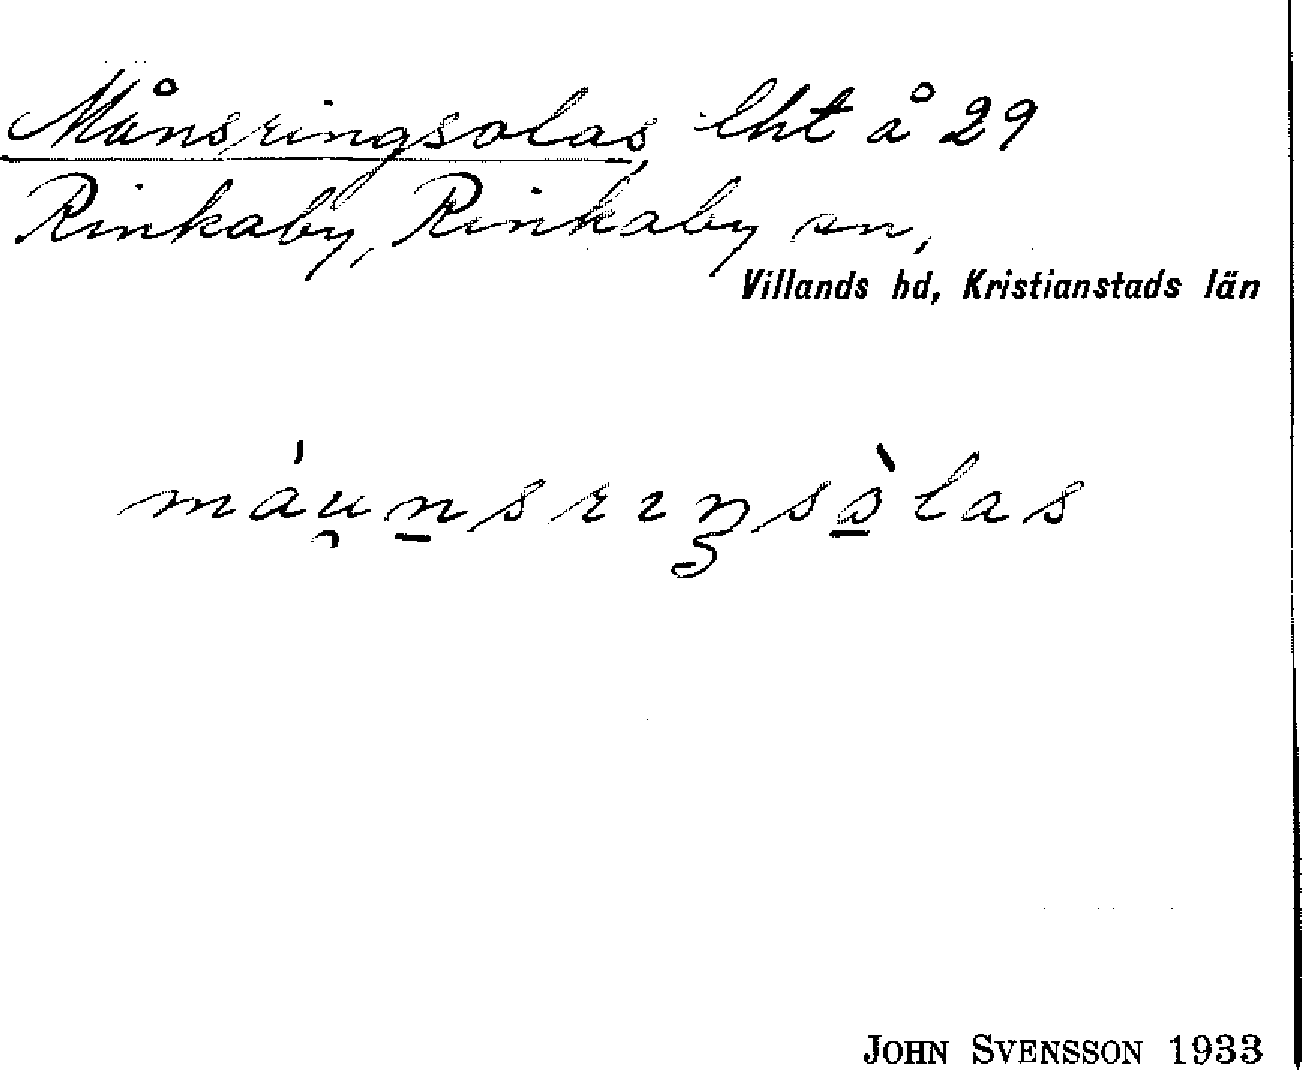 Månsringsolas, lht å 29
Rinkaby, Rinkaby sn,
Villands hd, Kristianstads län
máu̯n̠srıŋsò̠las
JOHN SVENSSON 1933